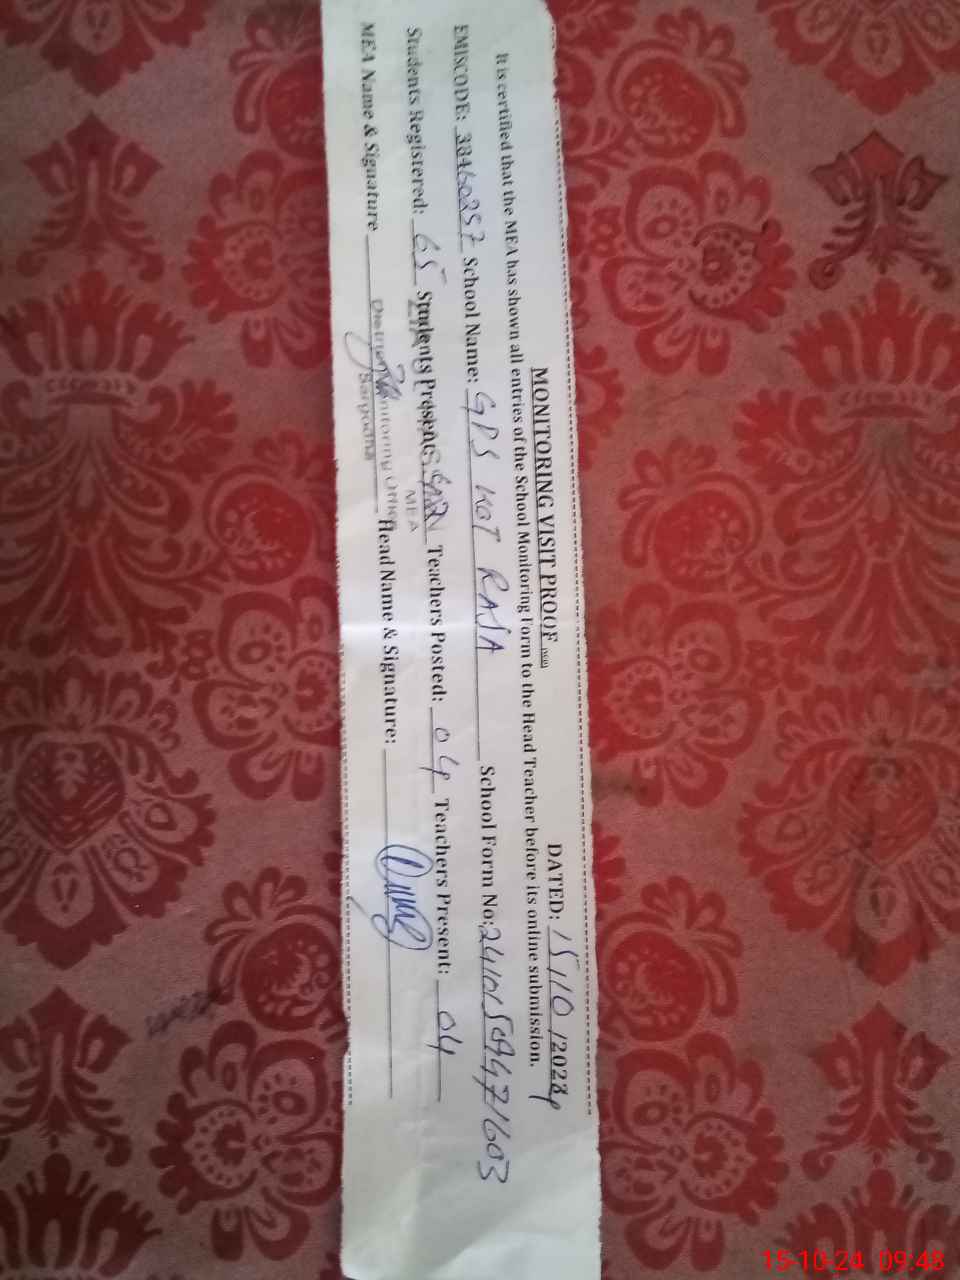 MONITORING VISIT PROOF
DATED: 15/10/2024
It is certified that the MEA has shown all entries of the School Monitoring Form to the Head Teacher before its online submission.
EMISCODE: 38460257 School Name: GPS KOT RAJA School Form No:
Students Registered: 65 Students Present: Teachers Posted: 04 Teachers Present: 04
MEA
MEA Name & Signature Head Name & Signature:
District Monitoring Office
Sargodha
15-10-24 09:48